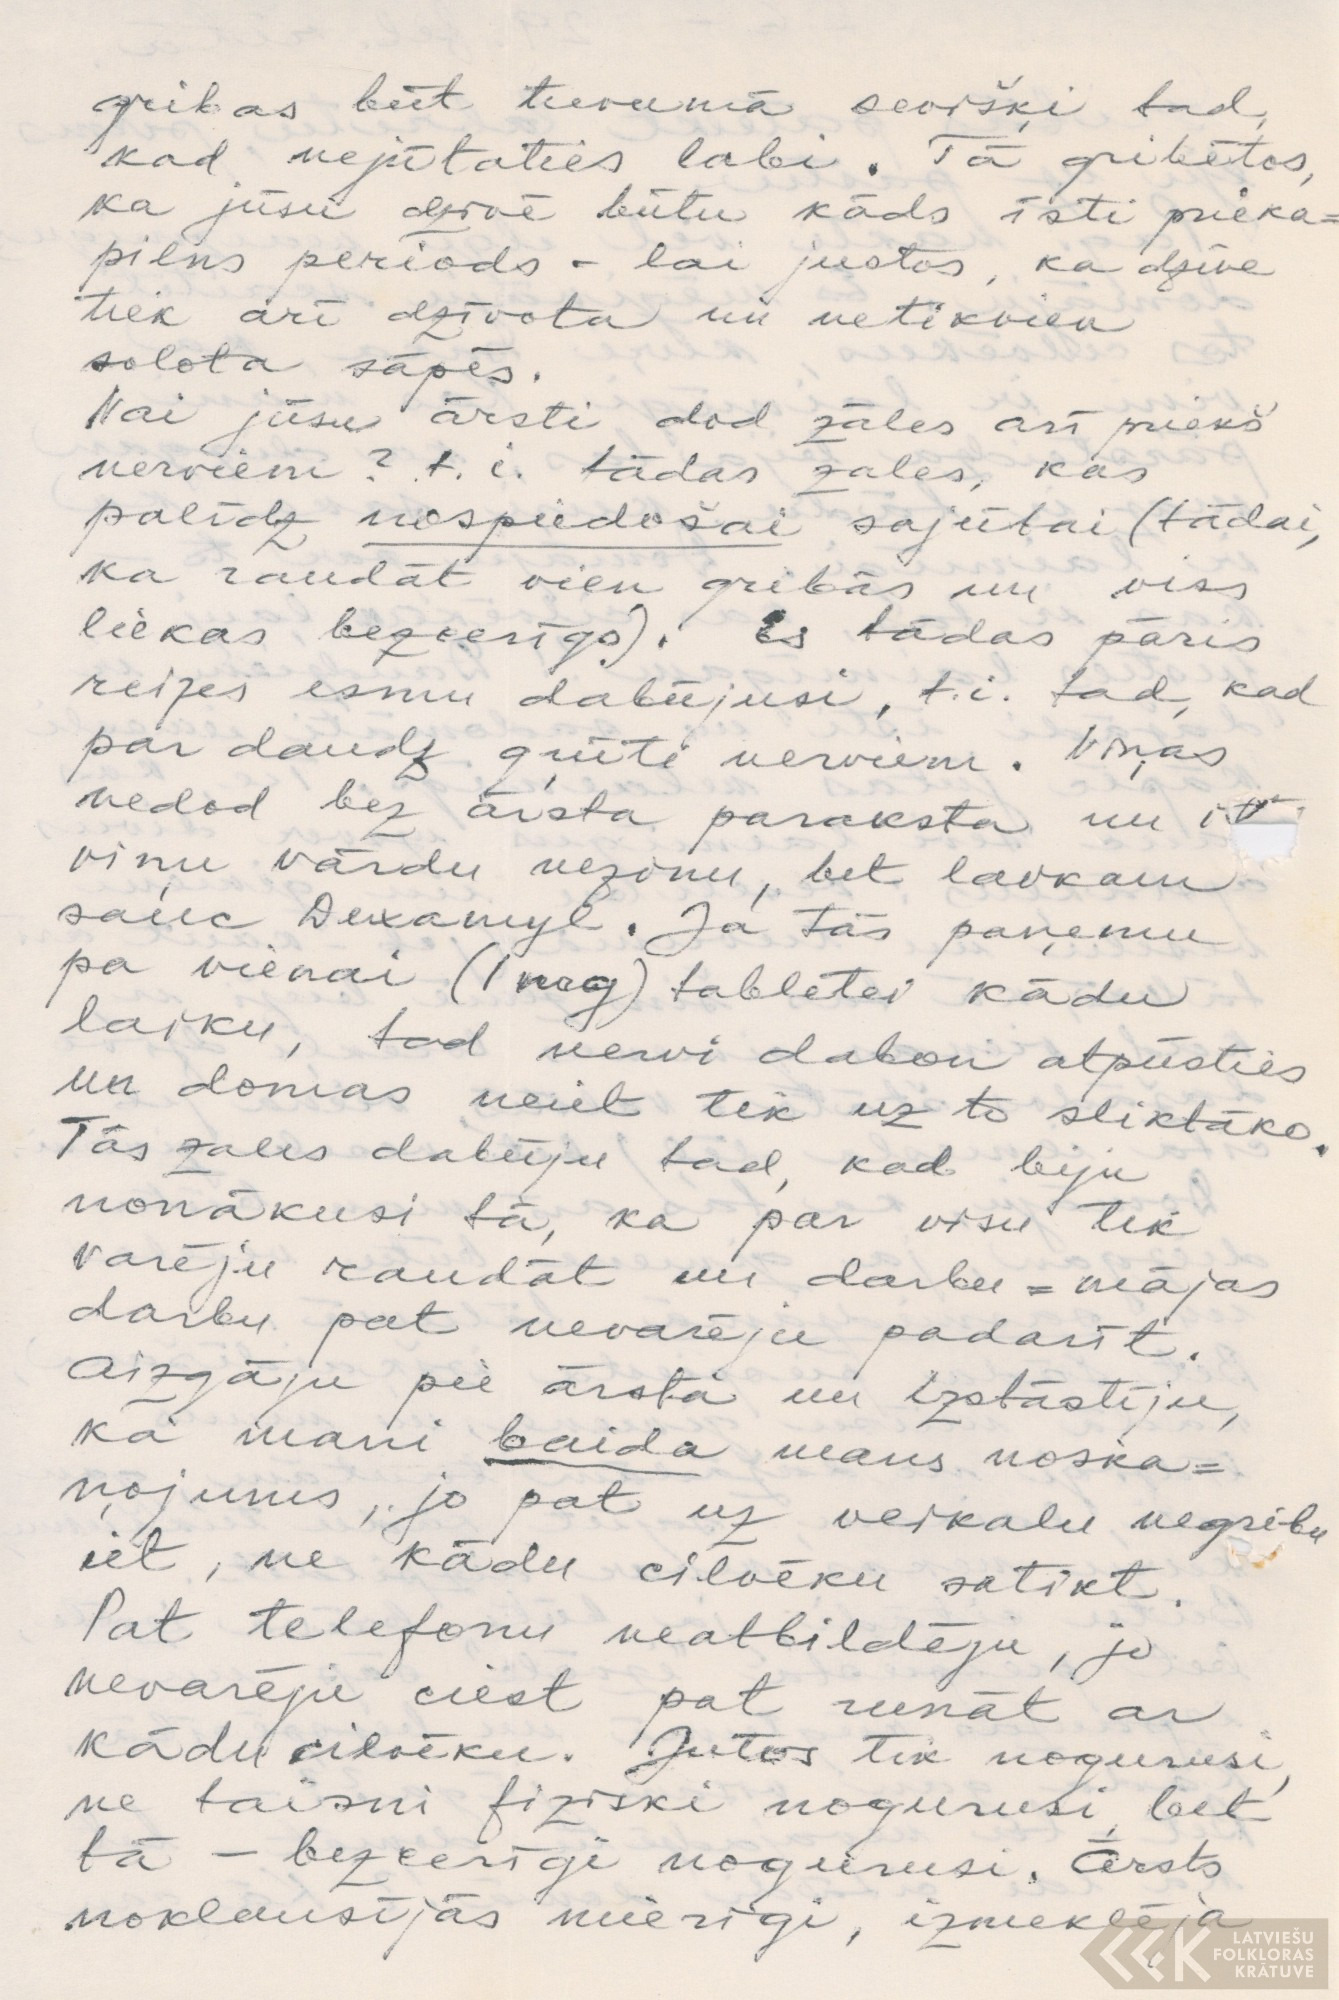 gribas būt tuvumā sevišķi tad,
kad nejūtaties labi. Tā gribētos,
ka jūsu dzīvē būtu kāds īsti prieka=
pilns periods - lai justos, ka dzīve
tiek arī dzīvota un netikvien
solota sāpēs.
Vai jūsu ārsti dod zāles arī priekš
nerviem? t.i. tādas zales, kas
palīdz nospiedošai sajūtai (tādai,
ka raudāt vien gribās un viss
liekas bezcerīgs). Es tādas pāris
reizes esmu dabūjusi, t.i. tad, kad
par daudz grūti nerviem. Viņas
nedod bez ārsta paraksta un
viņu vārdu nezinu, bet laukam
sauc Dexamyl. Ja Tās paņemu
pa vienai (1 mg) tabletei kādu
laiku, tad nervi dabon atpūsties
un domas neiet tik uz to sliktāko.
Tās zales dabūju tad, kad biju
nonākusi tā, ka par visu tik
varēju raudāt un darbu = mājas
darbu pat nevarēju padarīt.
Aizgāju pie ārsta un izstāstīju,
ka mani baida mans noska=
ņojums, jo pat uz veikalu negribu
iet, ne kādu cilvēku satikt.
Pat telefonu neatbildēju, jo
nevarēju ciest pat runāt ar
kādu cilvēku. Jutos tik nogurusi,
ne taisni fiziski nogurusi, bet
tā - bezcerīgi nogurusi. Ārsts
noklausījās mierīgi, izmeklēja
LATVIEŠU
FOLKLORAS
KRĀTUVE